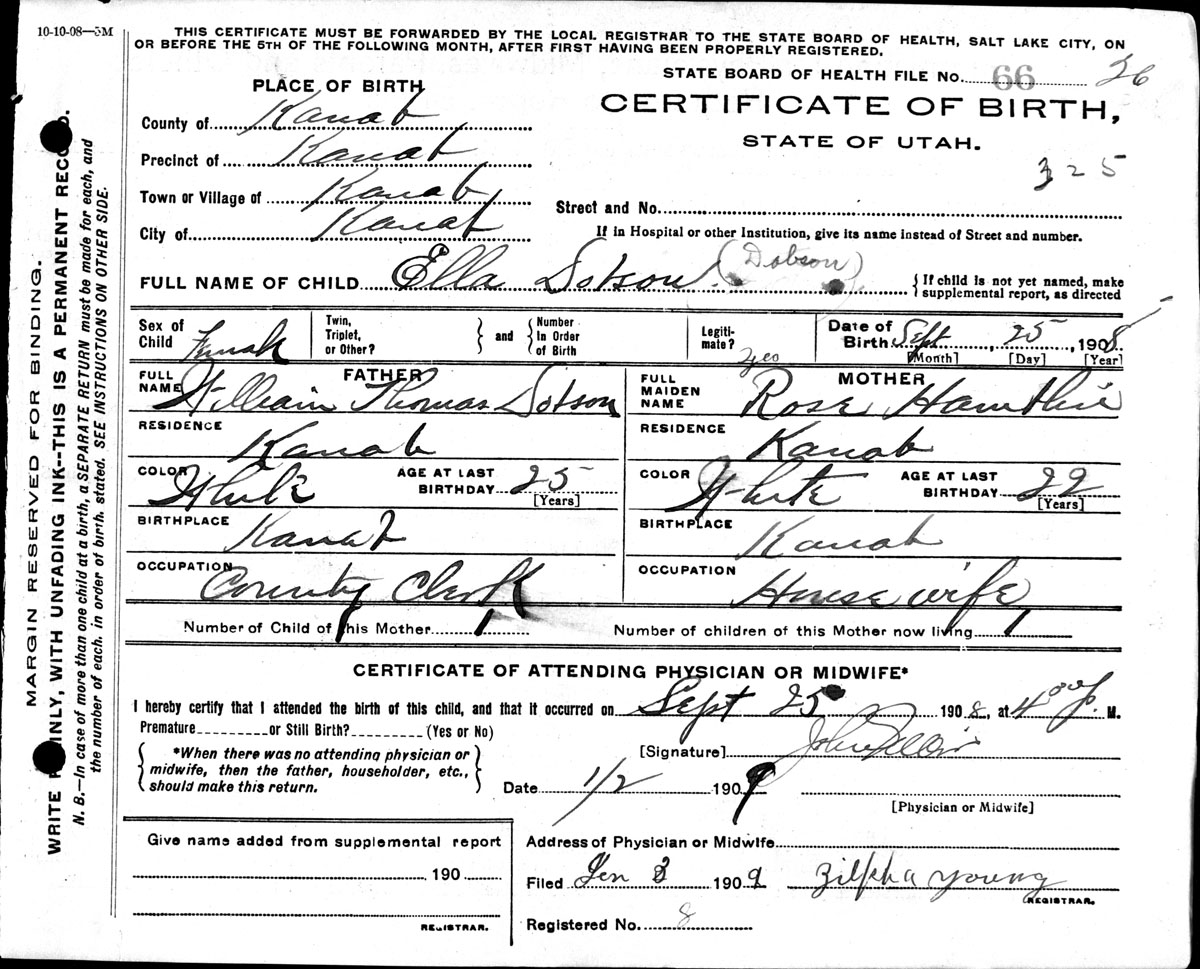 10-10-08—5M
THIS CERTIFICATE MUST BE FORWARDED BY THE LOCAL REGISTRAR TO THE STATE BOARD OF HEALTH, SALT LAKE CITY, ON
OR BEFORE THE 5TH OF THE FOLLOWING MONTH, AFTER FIRST HAVING BEEN PROPERLY REGISTERED.
STATE BOARD OF HEALTH FILE No. 66 26
PLACE OF BIRTH
CERTIFICATE OF BIRTH,
STATE OF UTAH.
325
County of Kanab
Precinct of Kanab
Town or Village of Kanab
City of Kanab
Street and No.
If in Hospital or other Institution, give its name instead of Street and number.
FULL NAME OF CHILD Ella Dotson (Dobson)
{ If child is not yet named, make
supplemental report, as directed
Sex of Child Female
Twin, Triplet, or Other? } and { Number In Order of Birth
Legiti-mate? yes
Date of Birth Sept 25, 1908
[Month] [Day] [Year]
FATHER
FULL NAME William Thomas Dotson
RESIDENCE Kanab
COLOR White AGE AT LAST BIRTHDAY 25 [Years]
BIRTHPLACE Kanab
OCCUPATION County Clerk
MOTHER
FULL MAIDEN NAME Rose
RESIDENCE Kanab
COLOR White AGE AT LAST BIRTHDAY 22 [Years]
BIRTHPLACE Kanab
OCCUPATION House wife
Number of Child of this Mother 1
Number of children of this Mother now living 1
CERTIFICATE OF ATTENDING PHYSICIAN OR MIDWIFE*
I hereby certify that I attended the birth of this child, and that it occurred on Sept 25 1908, at 4 00 P. M.
Premature or Still Birth? (Yes or No)
{ *When there was no attending physician or
midwife, then the father, householder, etc.,
should make this return. }
[Signature]
Date 1/2 1909
[Physician or Midwife]
Give name added from supplemental report
190
REGISTRAR.
Address of Physician or Midwife
Filed Jen 3 1909 Zilpha Young
REGISTRAR.
Registered No. 8
MARGIN RESERVED FOR BINDING.
WRITE PLAINLY, WITH UNFADING INK--THIS IS A PERMANENT RECORD.
N. B.—In case of more than one child at a birth, a SEPARATE RETURN must be made for each, and
the number of each, in order of birth, stated. SEE INSTRUCTIONS ON OTHER SIDE.